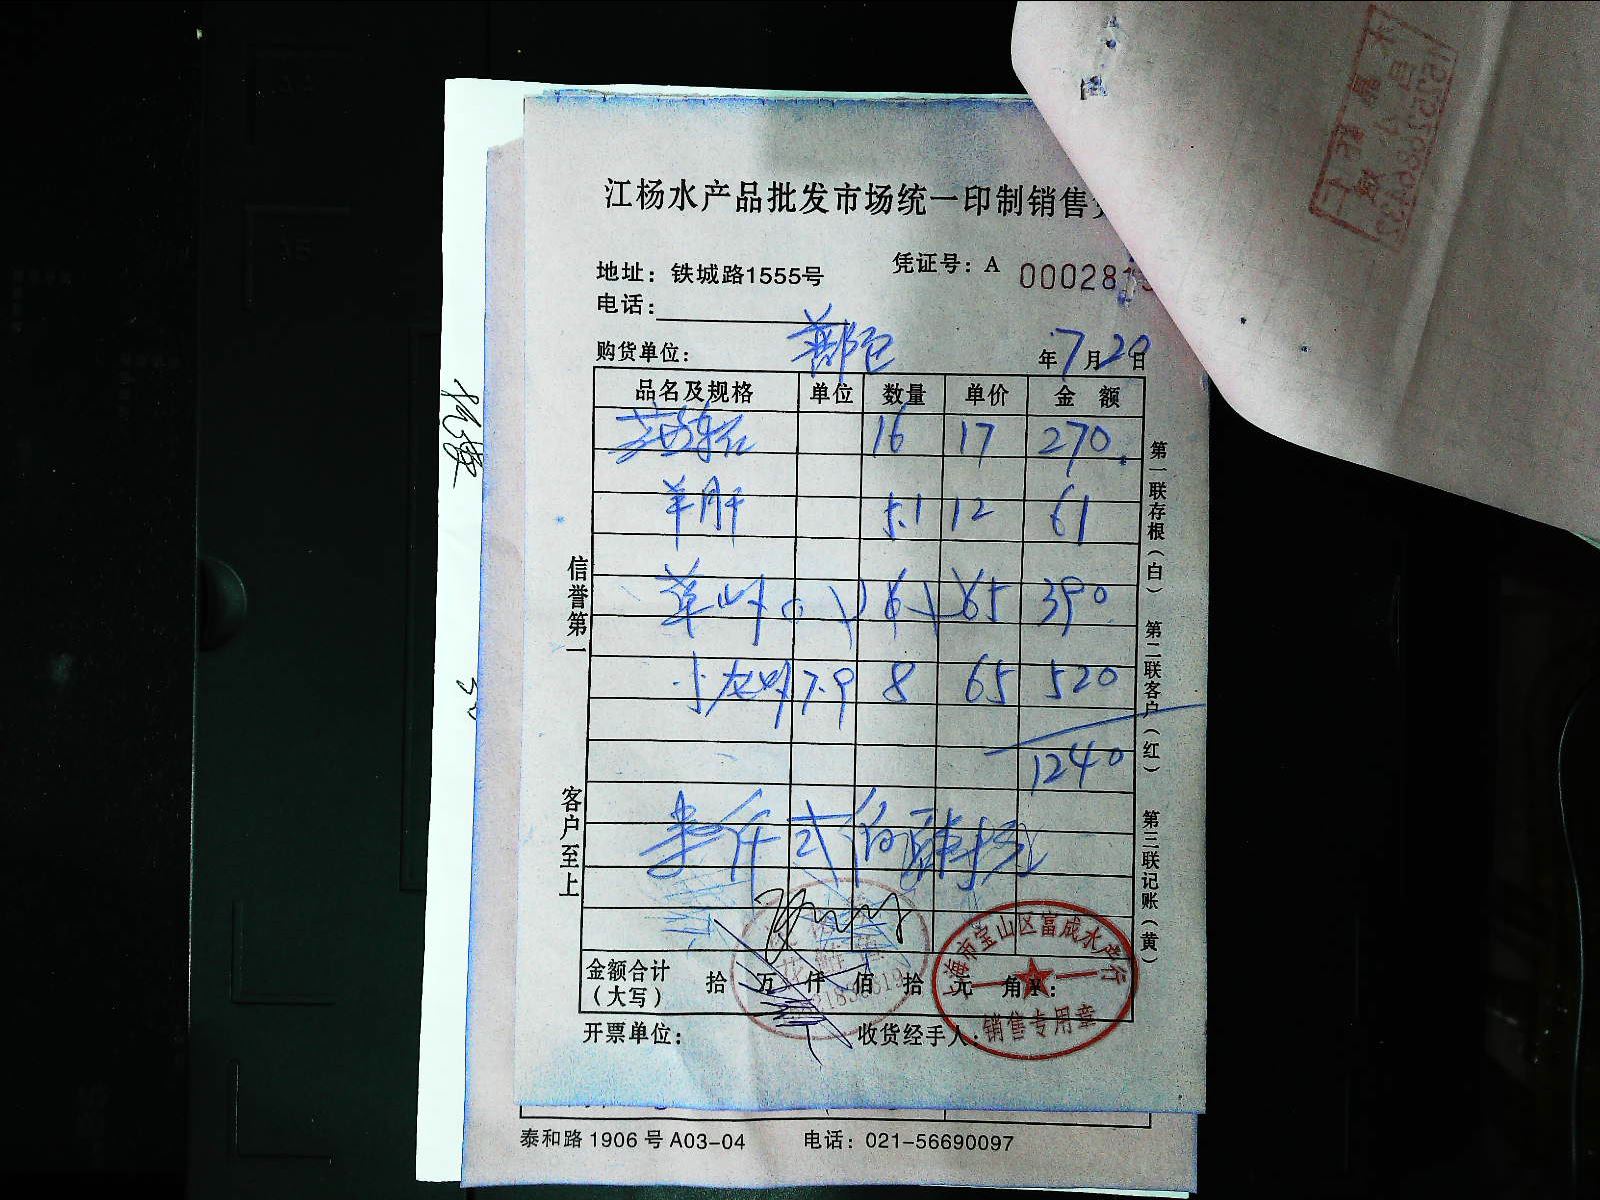 江杨水产品批发市场统一印制销售
凭证号：A 000281
地址：铁城路1555号
电话：
购货单位： 年7月20日
品名及规格 单位 数量 单价 金额
16 17 270
羊肝 5.1 12 61
草虾 6 65 390
小龙虾 7.9 8 65 520
1240
壹仟弍佰肆拾元
金额合计（大写） 拾 万 仟 佰 拾 元 角 ¥：
开票单位： 收货经手人：
信誉第一 客户至上
第一联存根（白） 第二联客户（红） 第三联记账（黄）
上海市宝山区富成水产行
销售专用章
泰和路1906号A03-04 电话：021-56690097